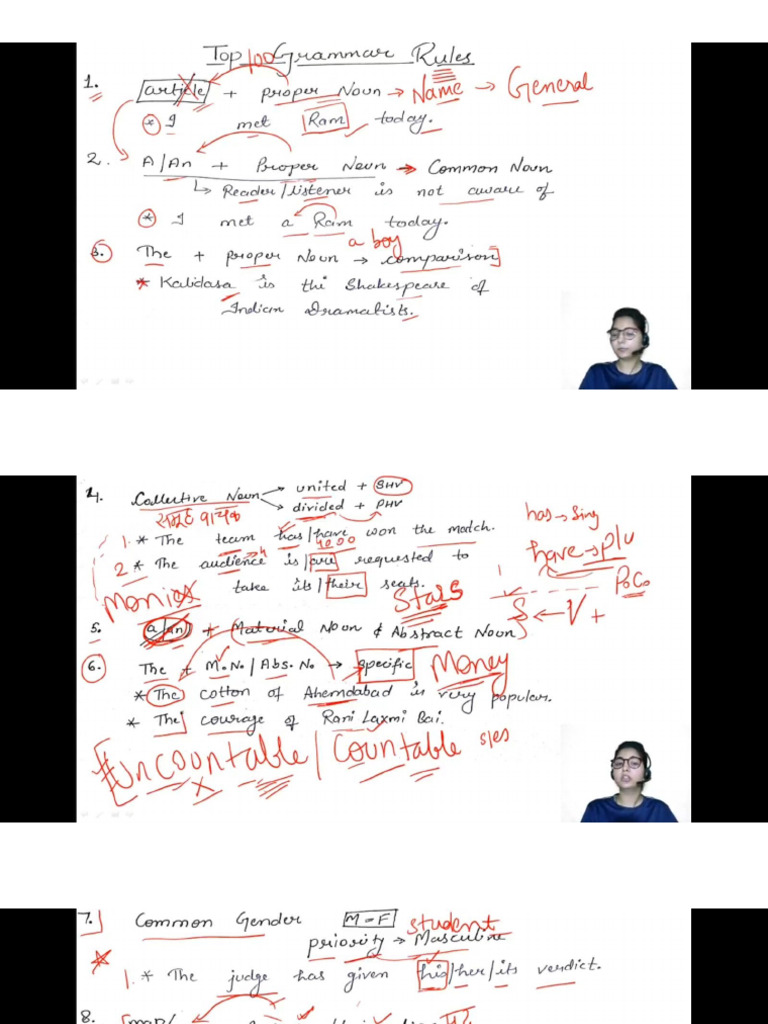 Top 100 Grammar Rules
1. article + proper Noun → Name → General
* I met Ram today.
2. A/An + Proper Noun → Common Noun
↳ Reader/listener is not aware of
* I met a Ram today.
a boy
3. The + proper Noun → comparison]
* Kalidasa is the Shakespeare of
Indian Dramatists.
4. Collective Noun → united + SHV
→ divided + PHV
समूह वाचक
has → Sing
1. * The team has/have won the match.
4000
have → plu
2 * The audience is/are requested to
take its/their seats.
Monies
Stars
PoCo
S ← V +
5. a/an + Material Noun & Abstract Noun
6. The + M.No/Abs. No → specific Money
* The cotton of Ahemdabad is very popular.
* The courage of Rani Laxmi Bai.
# Uncountable / Countable s/es
7. Common Gender M-F student
priority → Masculine
1. * The judge has given his/her/its verdict.
8.